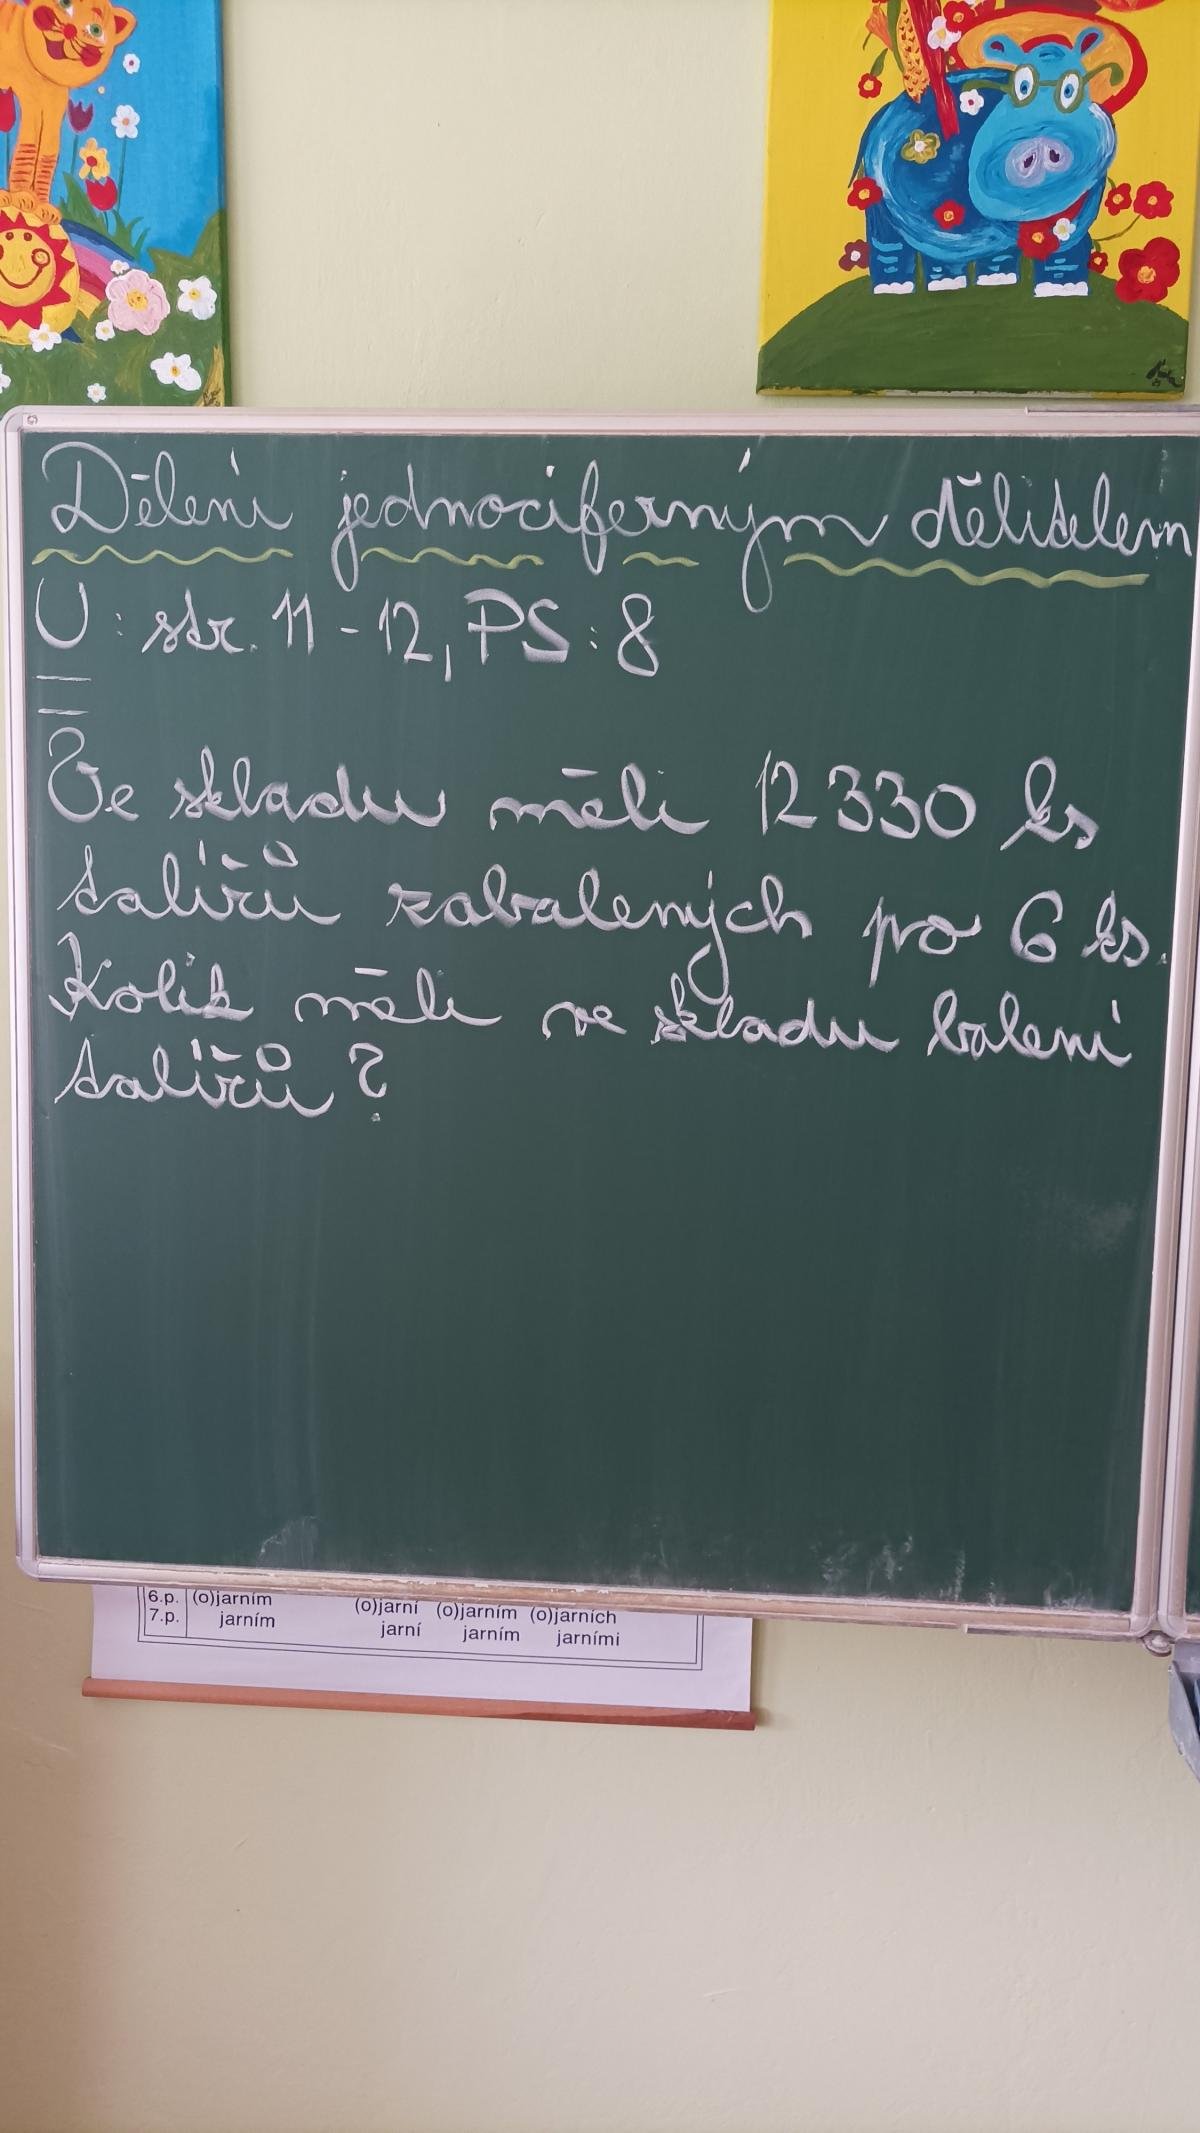 Dělení jednociferným dělitelem
U: str. 11-12, PS: 8
Ve skladu měli 12 330 ks
talířů zabalených po 6 ks.
Kolik měli ve skladu balení
talířů?
6.p. (o)jarním (o)jarní (o)jarním (o)jarních
7.p. jarním jarní jarním jarními